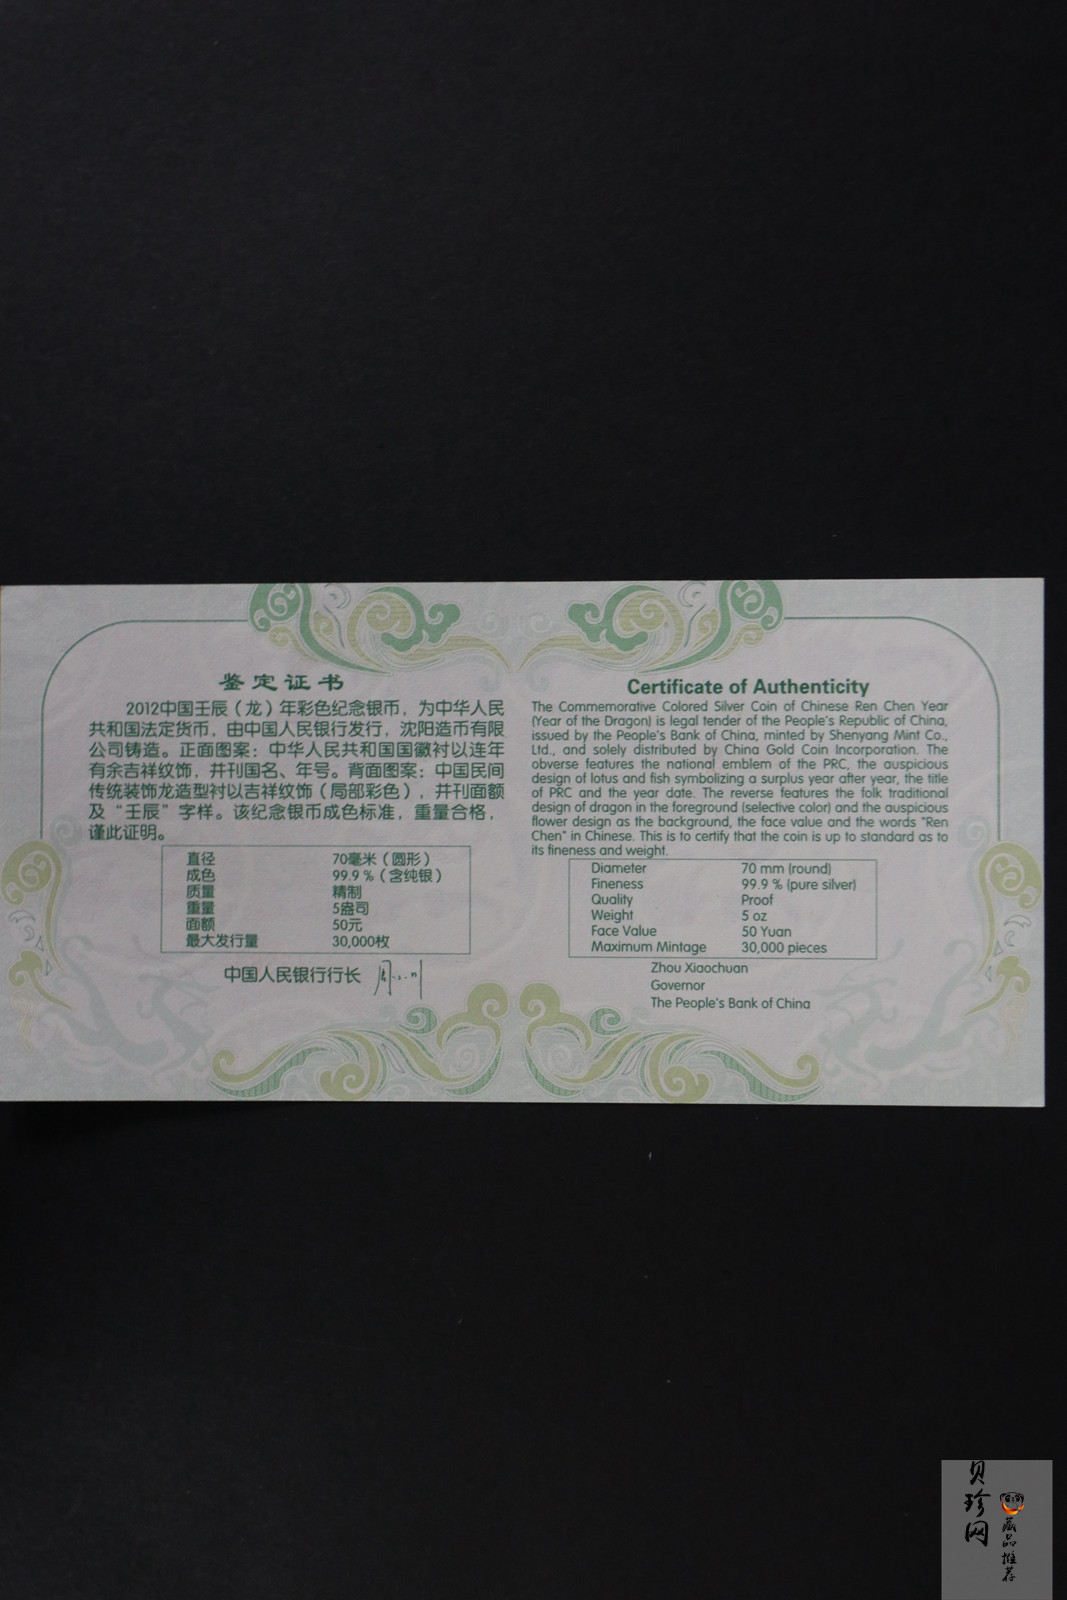 鉴定证书
2012中国壬辰（龙）年彩色纪念银币，为中华人民
共和国法定货币，由中国人民银行发行，沈阳造币有限
公司铸造。正面图案：中华人民共和国国徽衬以连年
有余吉祥纹饰，并刊国名、年号。背面图案：中国民间
传统装饰龙造型衬以吉祥纹饰（局部彩色），并刊面额
及“壬辰”字样。该纪念银币成色标准，重量合格，
谨此证明。
直径 70毫米（圆形）
成色 99.9％（含纯银）
质量 精制
重量 5盎司
面额 50元
最大发行量 30,000枚
中国人民银行行长
Certificate of Authenticity
The Commemorative Colored Silver Coin of Chinese Ren Chen Year
(Year of the Dragon) is legal tender of the People's Republic of China,
issued by the People's Bank of China, minted by Shenyang Mint Co.,
Ltd., and solely distributed by China Gold Coin Incorporation. The
obverse features the national emblem of the PRC, the auspicious
design of lotus and fish symbolizing a surplus year after year, the title
of PRC and the year date. The reverse features the folk traditional
design of dragon in the foreground (selective color) and the auspicious
flower design as the background, the face value and the words "Ren
Chen" in Chinese. This is to certify that the coin is up to standard as to
its fineness and weight.
Diameter 70 mm (round)
Fineness 99.9 % (pure silver)
Quality Proof
Weight 5 oz
Face Value 50 Yuan
Maximum Mintage 30,000 pieces
Zhou Xiaochuan
Governor
The People's Bank of China
贝珍网
藏品推荐